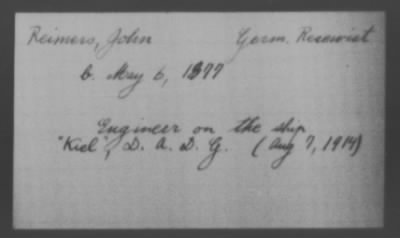 Reimers, John Germ. Reservist
b. May 6, 1877
Engineer on the ship
"Kiel", D. A. D. G. (Aug 7, 1914)